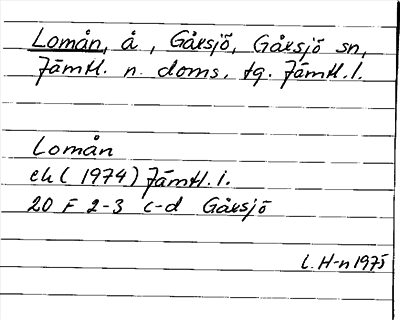 Lomån, å, Gåxsjö, Gåxsjö sn,
Jämtl. n. doms. tg. Jämtl. l.
Lomån
ek ( 1974) Jämtl. l.
20 F 2-3 c-d Gåxsjö
L. H-n 1975